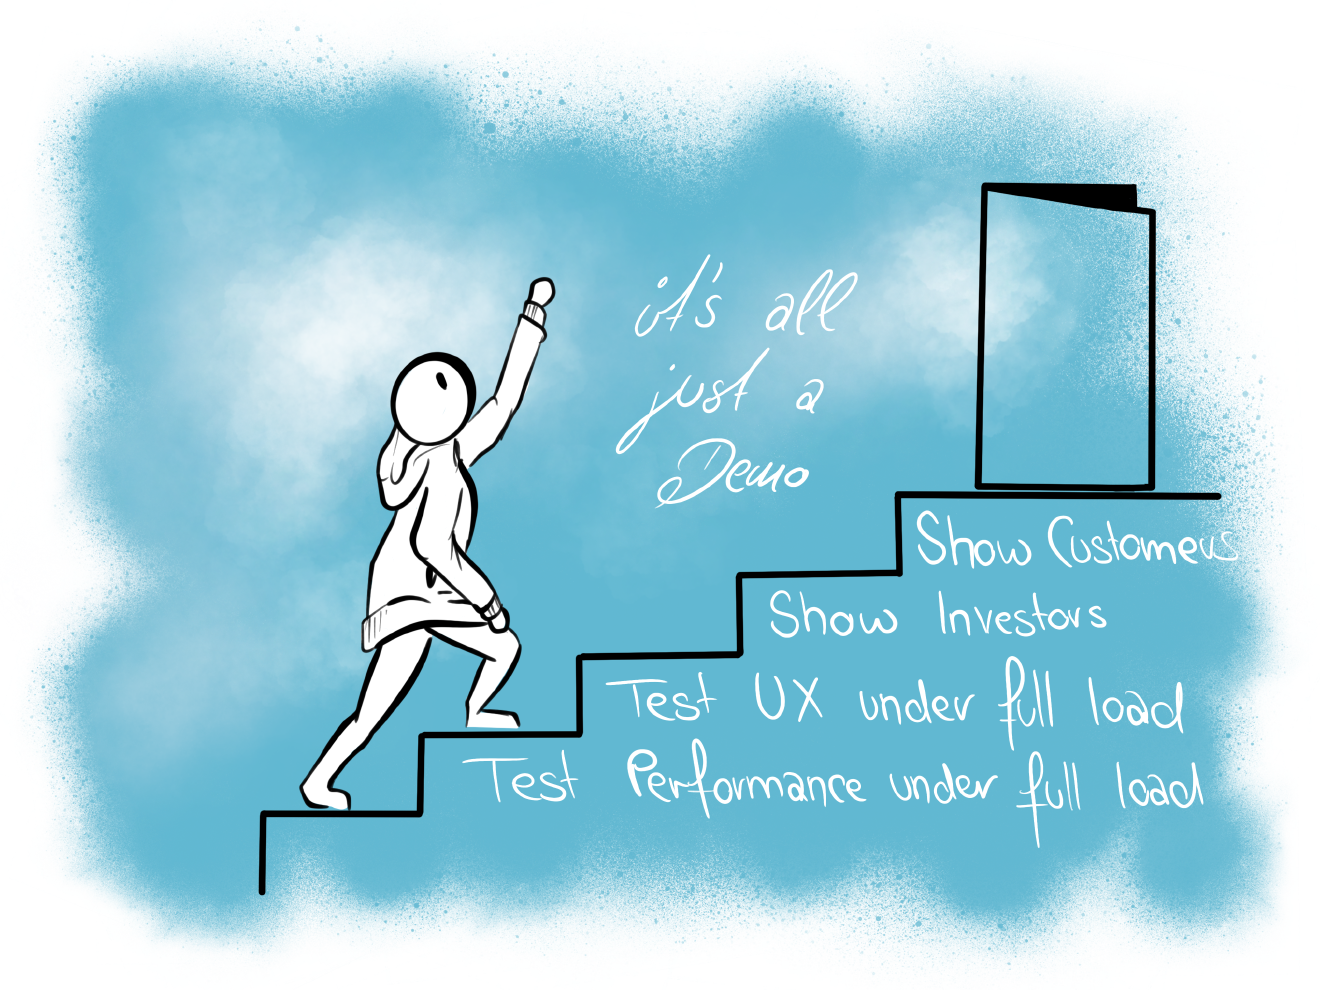 it's all
just a
Demo
Show Customers
Show Investors
Test UX under full load
Test Performance under full load